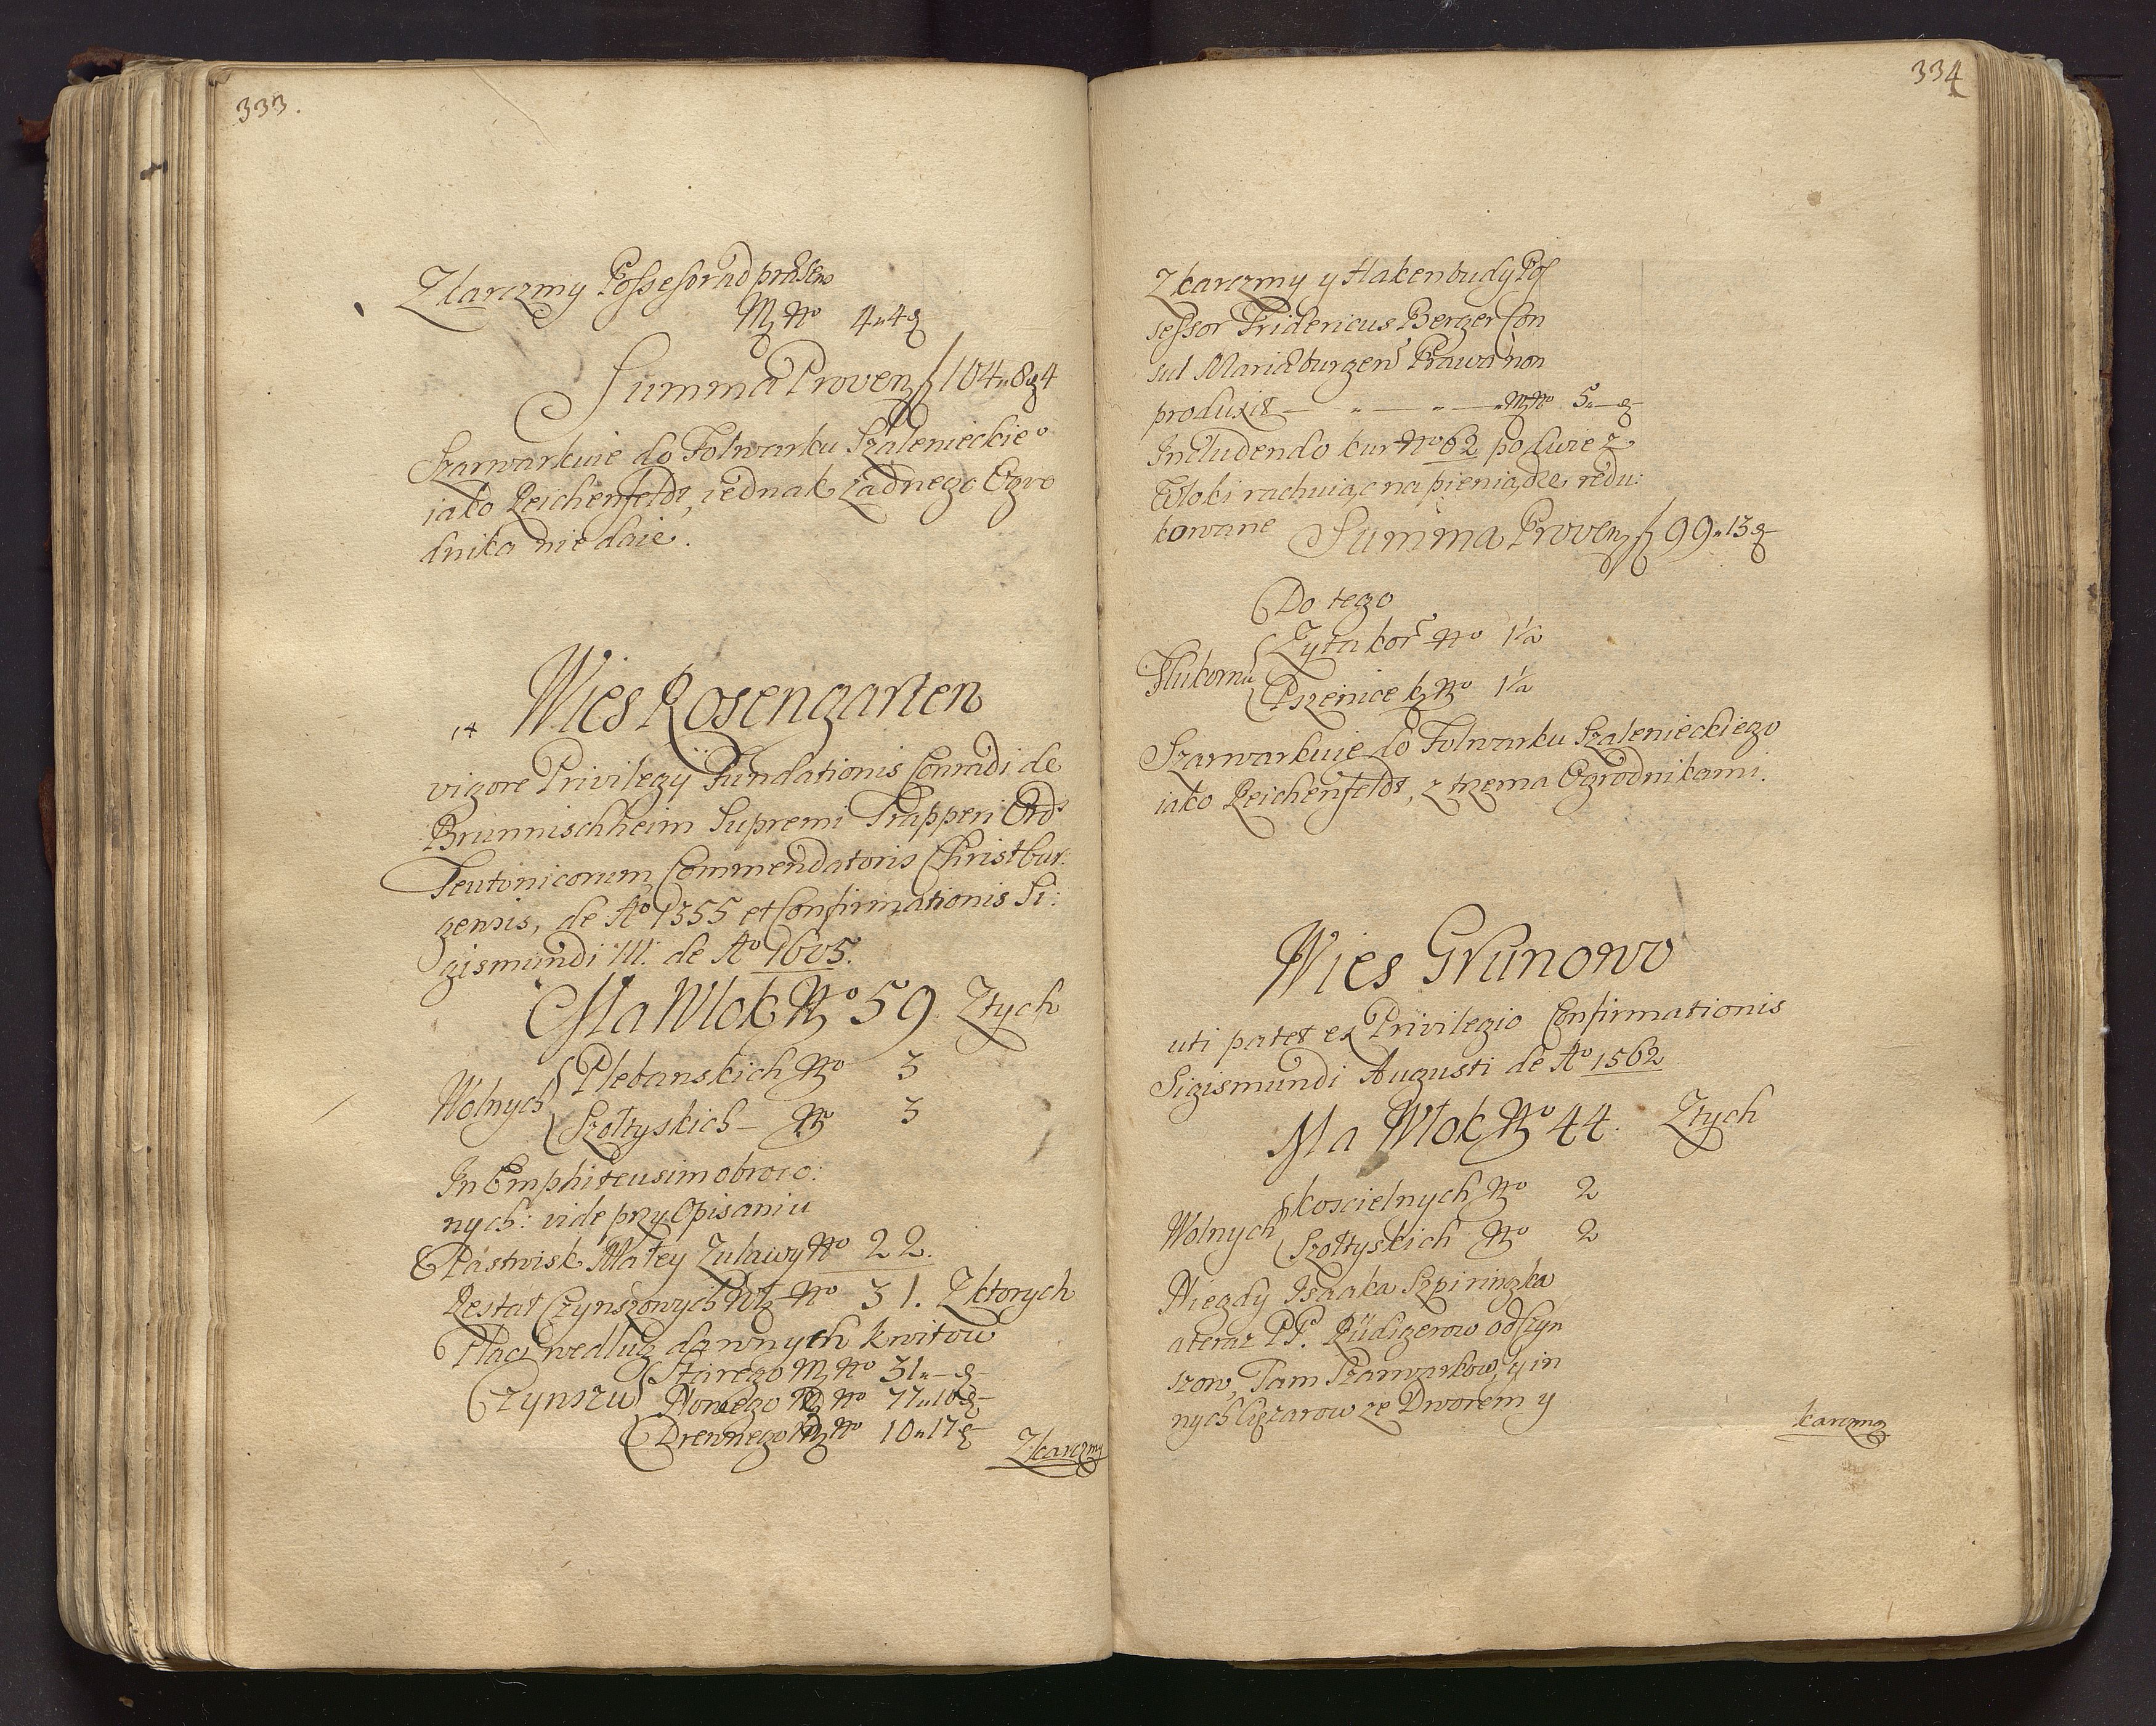 333.
Z karczmy Possessor ad præsens
Mz No 4 „ 4 g
Summa Proven f 104 „ 8 g 4
Szarwarkuie do Folwarku Szalenieckieo
iako Reichenfeldt, iednak zadnego Ogro
dnika nie daie.
14 Wies Rosengarten
vigore Privilegÿ Fundationis Conradi de
Brunnischheim Supremi Trapperi Ord:
Teutonicorum Commendatoris Christbur:
gensis, de Ao 1355 et Confirmationis Si:
gismundi III. de Ao 1605.
Ma Wlok No 59. Z tych
Wolnych Plebanskich No 3
Szołtyskich – No 3
In Emphiteusim obroco:
nych: vide przy Opisaniu
Pastwisk Małey Zuławy No 22.
Restat Czynszowych Wł No 31. Z ktorych
Płacą według dawnych kwitow
Czynszu Starego Mz No 31 „ – g –
Nowego Mz No 77 „ 10 g –
Drewnego Mz No 10 „ 17 g –
Z karczmy
334
Z karczmy y Hakenbudy Pos
sessor Fridericus Berger Con
sul Mariæburgens Prawa non
produxit – „ – „ – „ Mz No 5 „ – g –
Includendo kur No 62 po dwie z
Włoki rachuiąc na pieniądze redu:
kowane Summa Proven f 99 „ 13 g –
Do tego
Zyta kor No 1½
Flukornu
Pszenice k No 1½
Szarwarkuie do Folwarku Szalenieckiego
iako Reichenfeldt, z trzema Ogrodnikami.
Wies Grunowo
uti patet ex Privilegio Confirmationis
Sigismundi Augusti de Ao 1562
Ma Włok No 44. Z tych
Koscielnych No 2
Wolnych
Szołtyskich No 2
Niegdy Isaaka Szpiringka
a teraz PP. Rüdigerow od Czyn
szow, Tam Szarwarkow, y in
nych Cięzarow ze Dworem y
karczmą